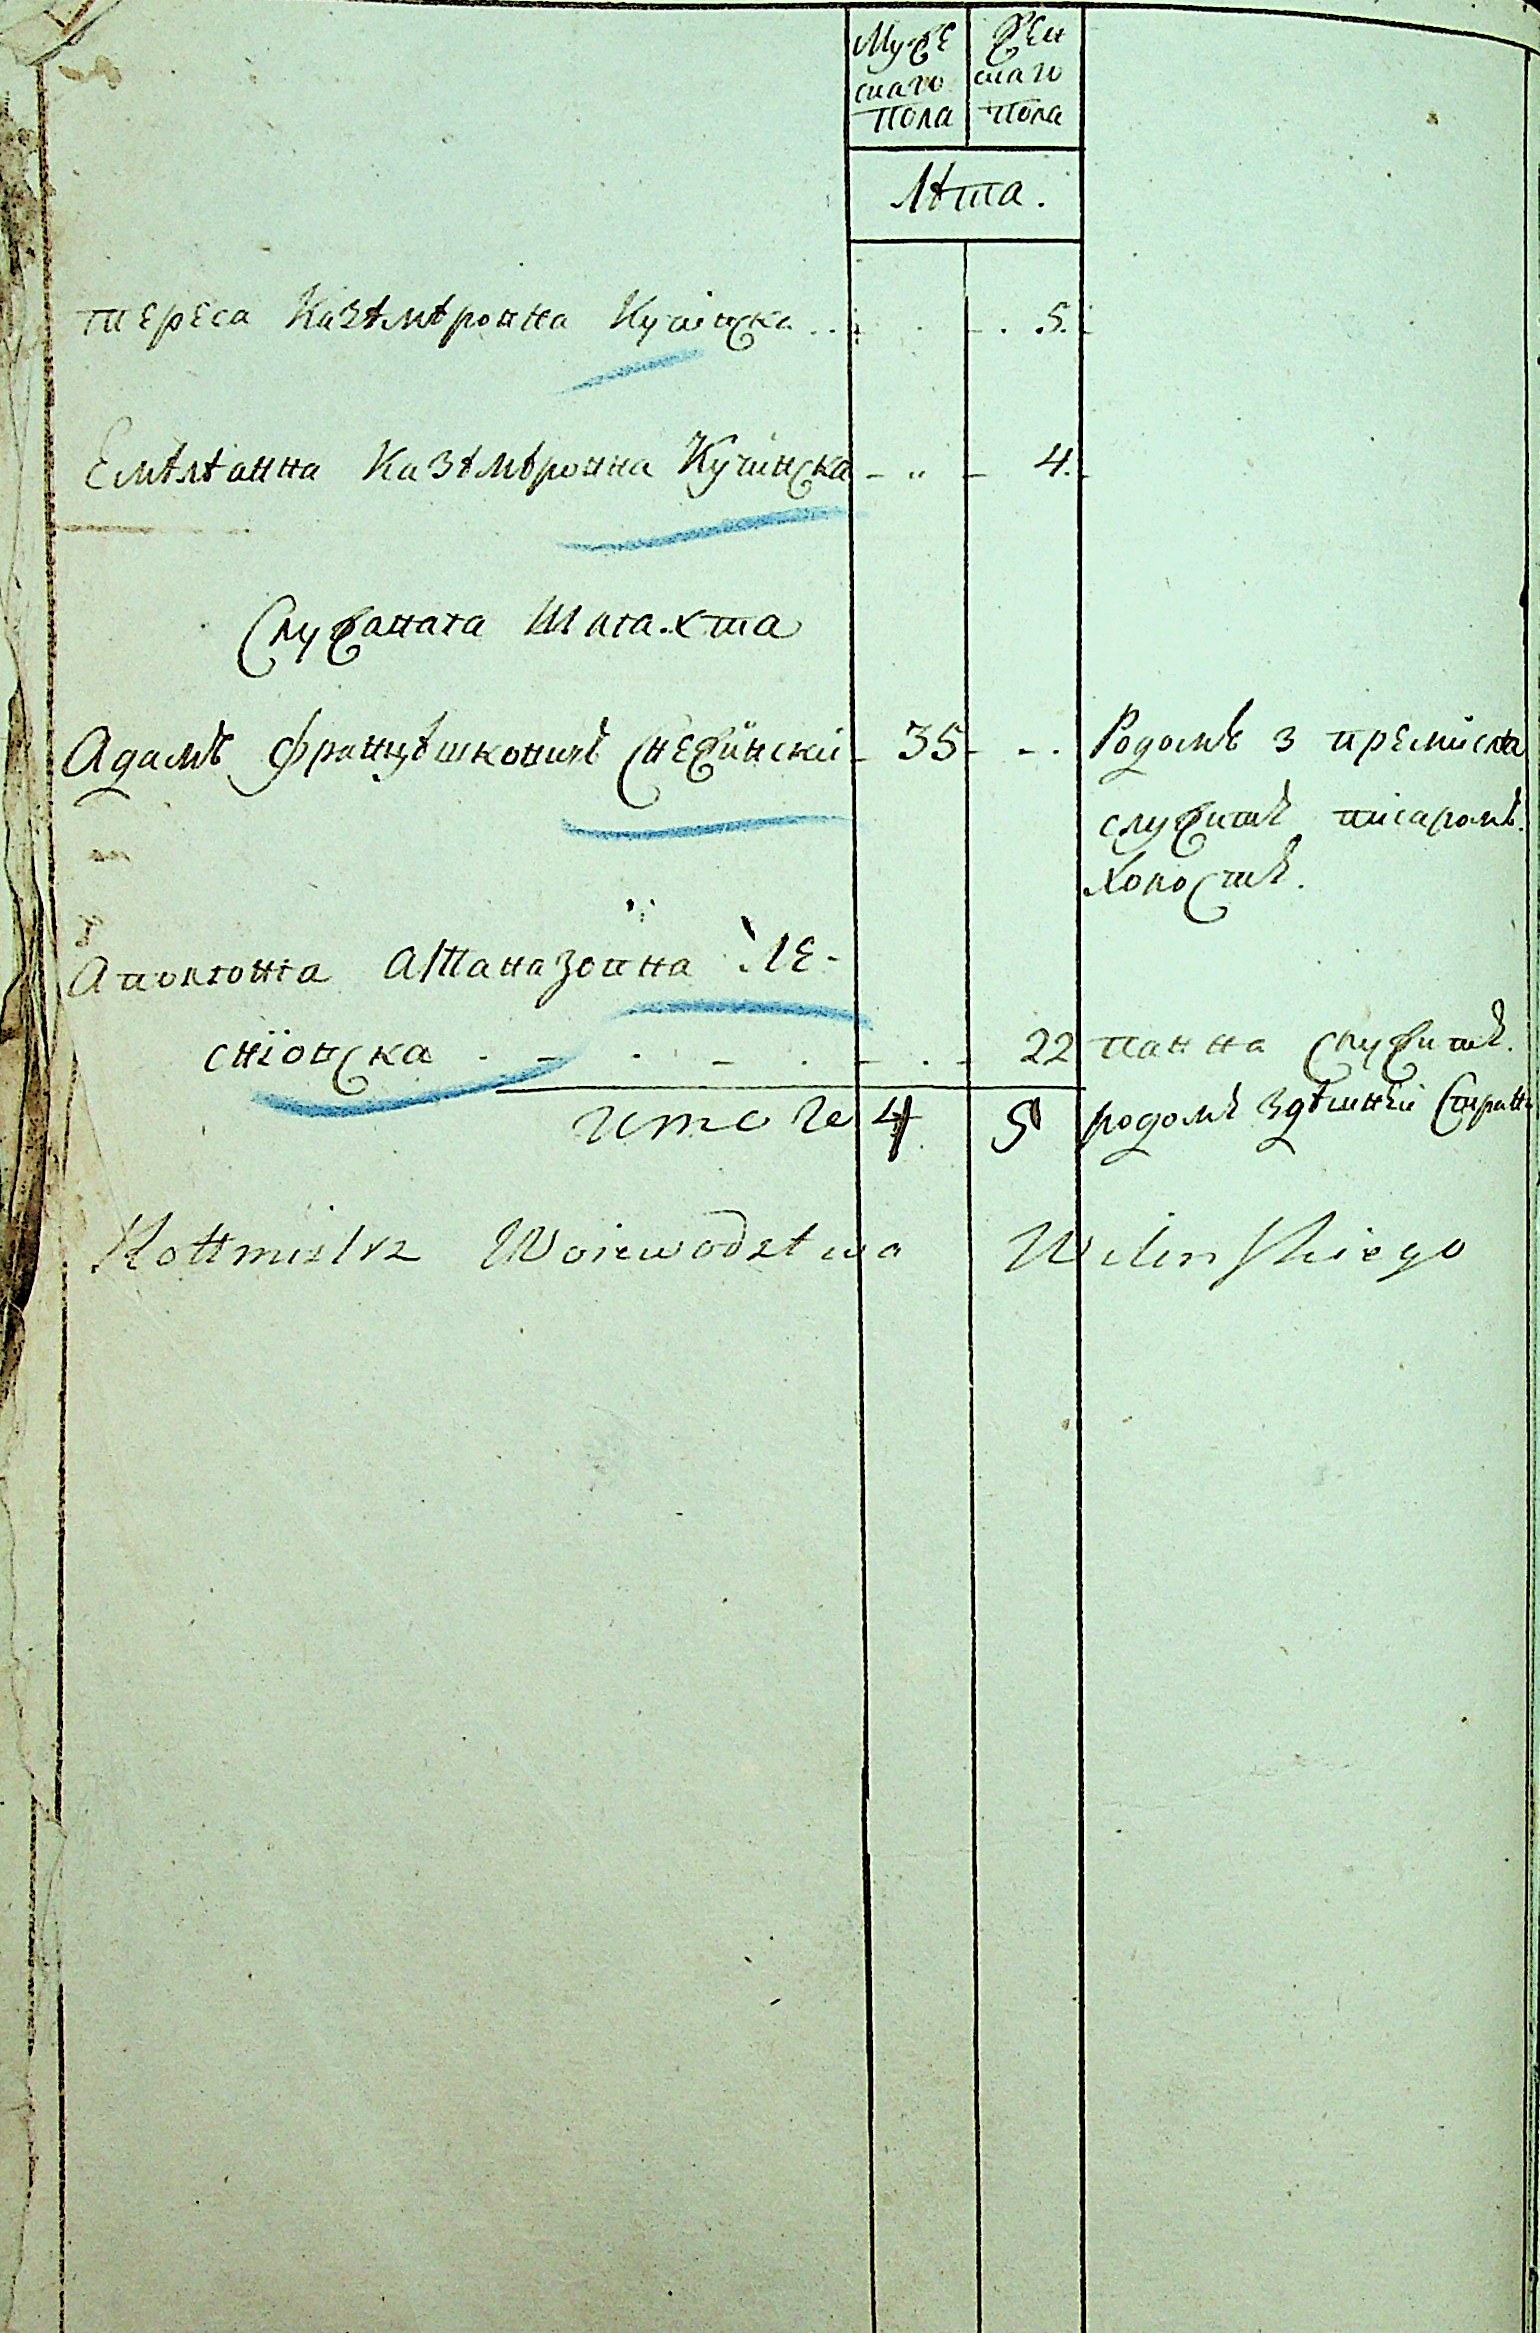 Муже Жен
скаго скаго
Пола Пола
Лѣта.
Тереса Казѣмѣровна Кучинска . . . . 5.
Емѣлѣанна Казѣмѣровна Кучинска - „ - 4.
Служачая Шляхта
Адамъ Францѣшковичъ Снежинскій - 35 - - . Родомъ з премисля
служитъ писаромъ.
Холостъ.
Аполонія Атаназовна Ле-
снїовска . - . - . - . - 22 панна служитъ.
итого 4 5 родомъ здѣшней Стран
Rottmistrz Woiewodztwa Wilenskiego